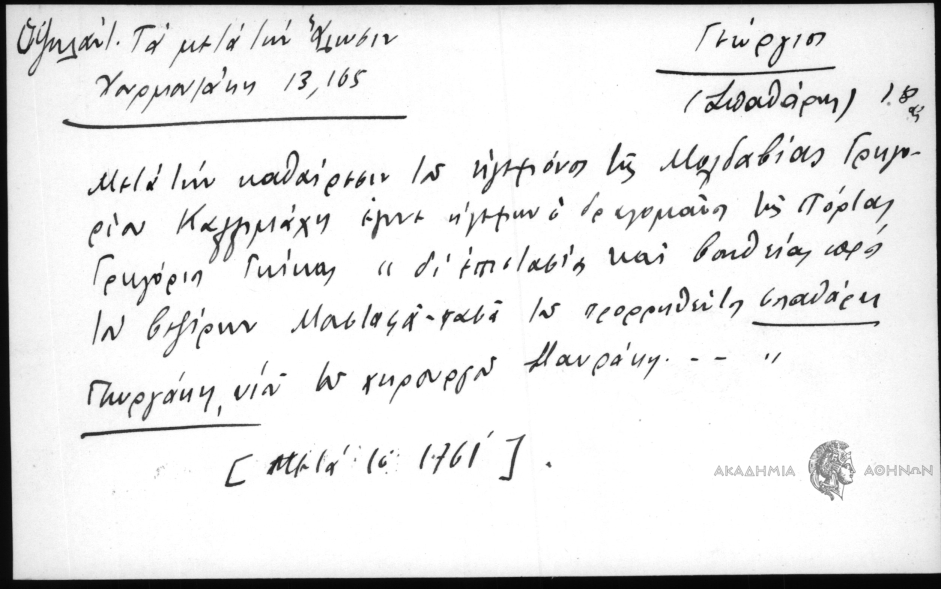 Ὑψηλάντ. Τά μετά τήν Ἅλωσιν
Χουρμουζάκη 13, 165
Γεώργιος
(Σπαθάρης) 18
Μετά τήν καθαίρεσιν τοῦ ἡγεμόνος τῆς Μολδαβίας Γρηγο-
ρίου Καλλιμάχη ἔγινε ἡγεμών ὁ δραγομάνος τῆς Πόρτας
Γρηγόριος Γκίκας " δι' ἐπιστασίας καί βοηθείας πρός
τόν βεζύρην Μουσταφᾶ-πασᾶ τοῦ προρρηθέντος σπαθάρη
Γεωργάκη, υἱοῦ τοῦ χειρουργοῦ Μαυράκη. - - "
[Μετά τό 1761] .
ΑΚΑΔΗΜΙΑ ΑΘΗΝΩΝ